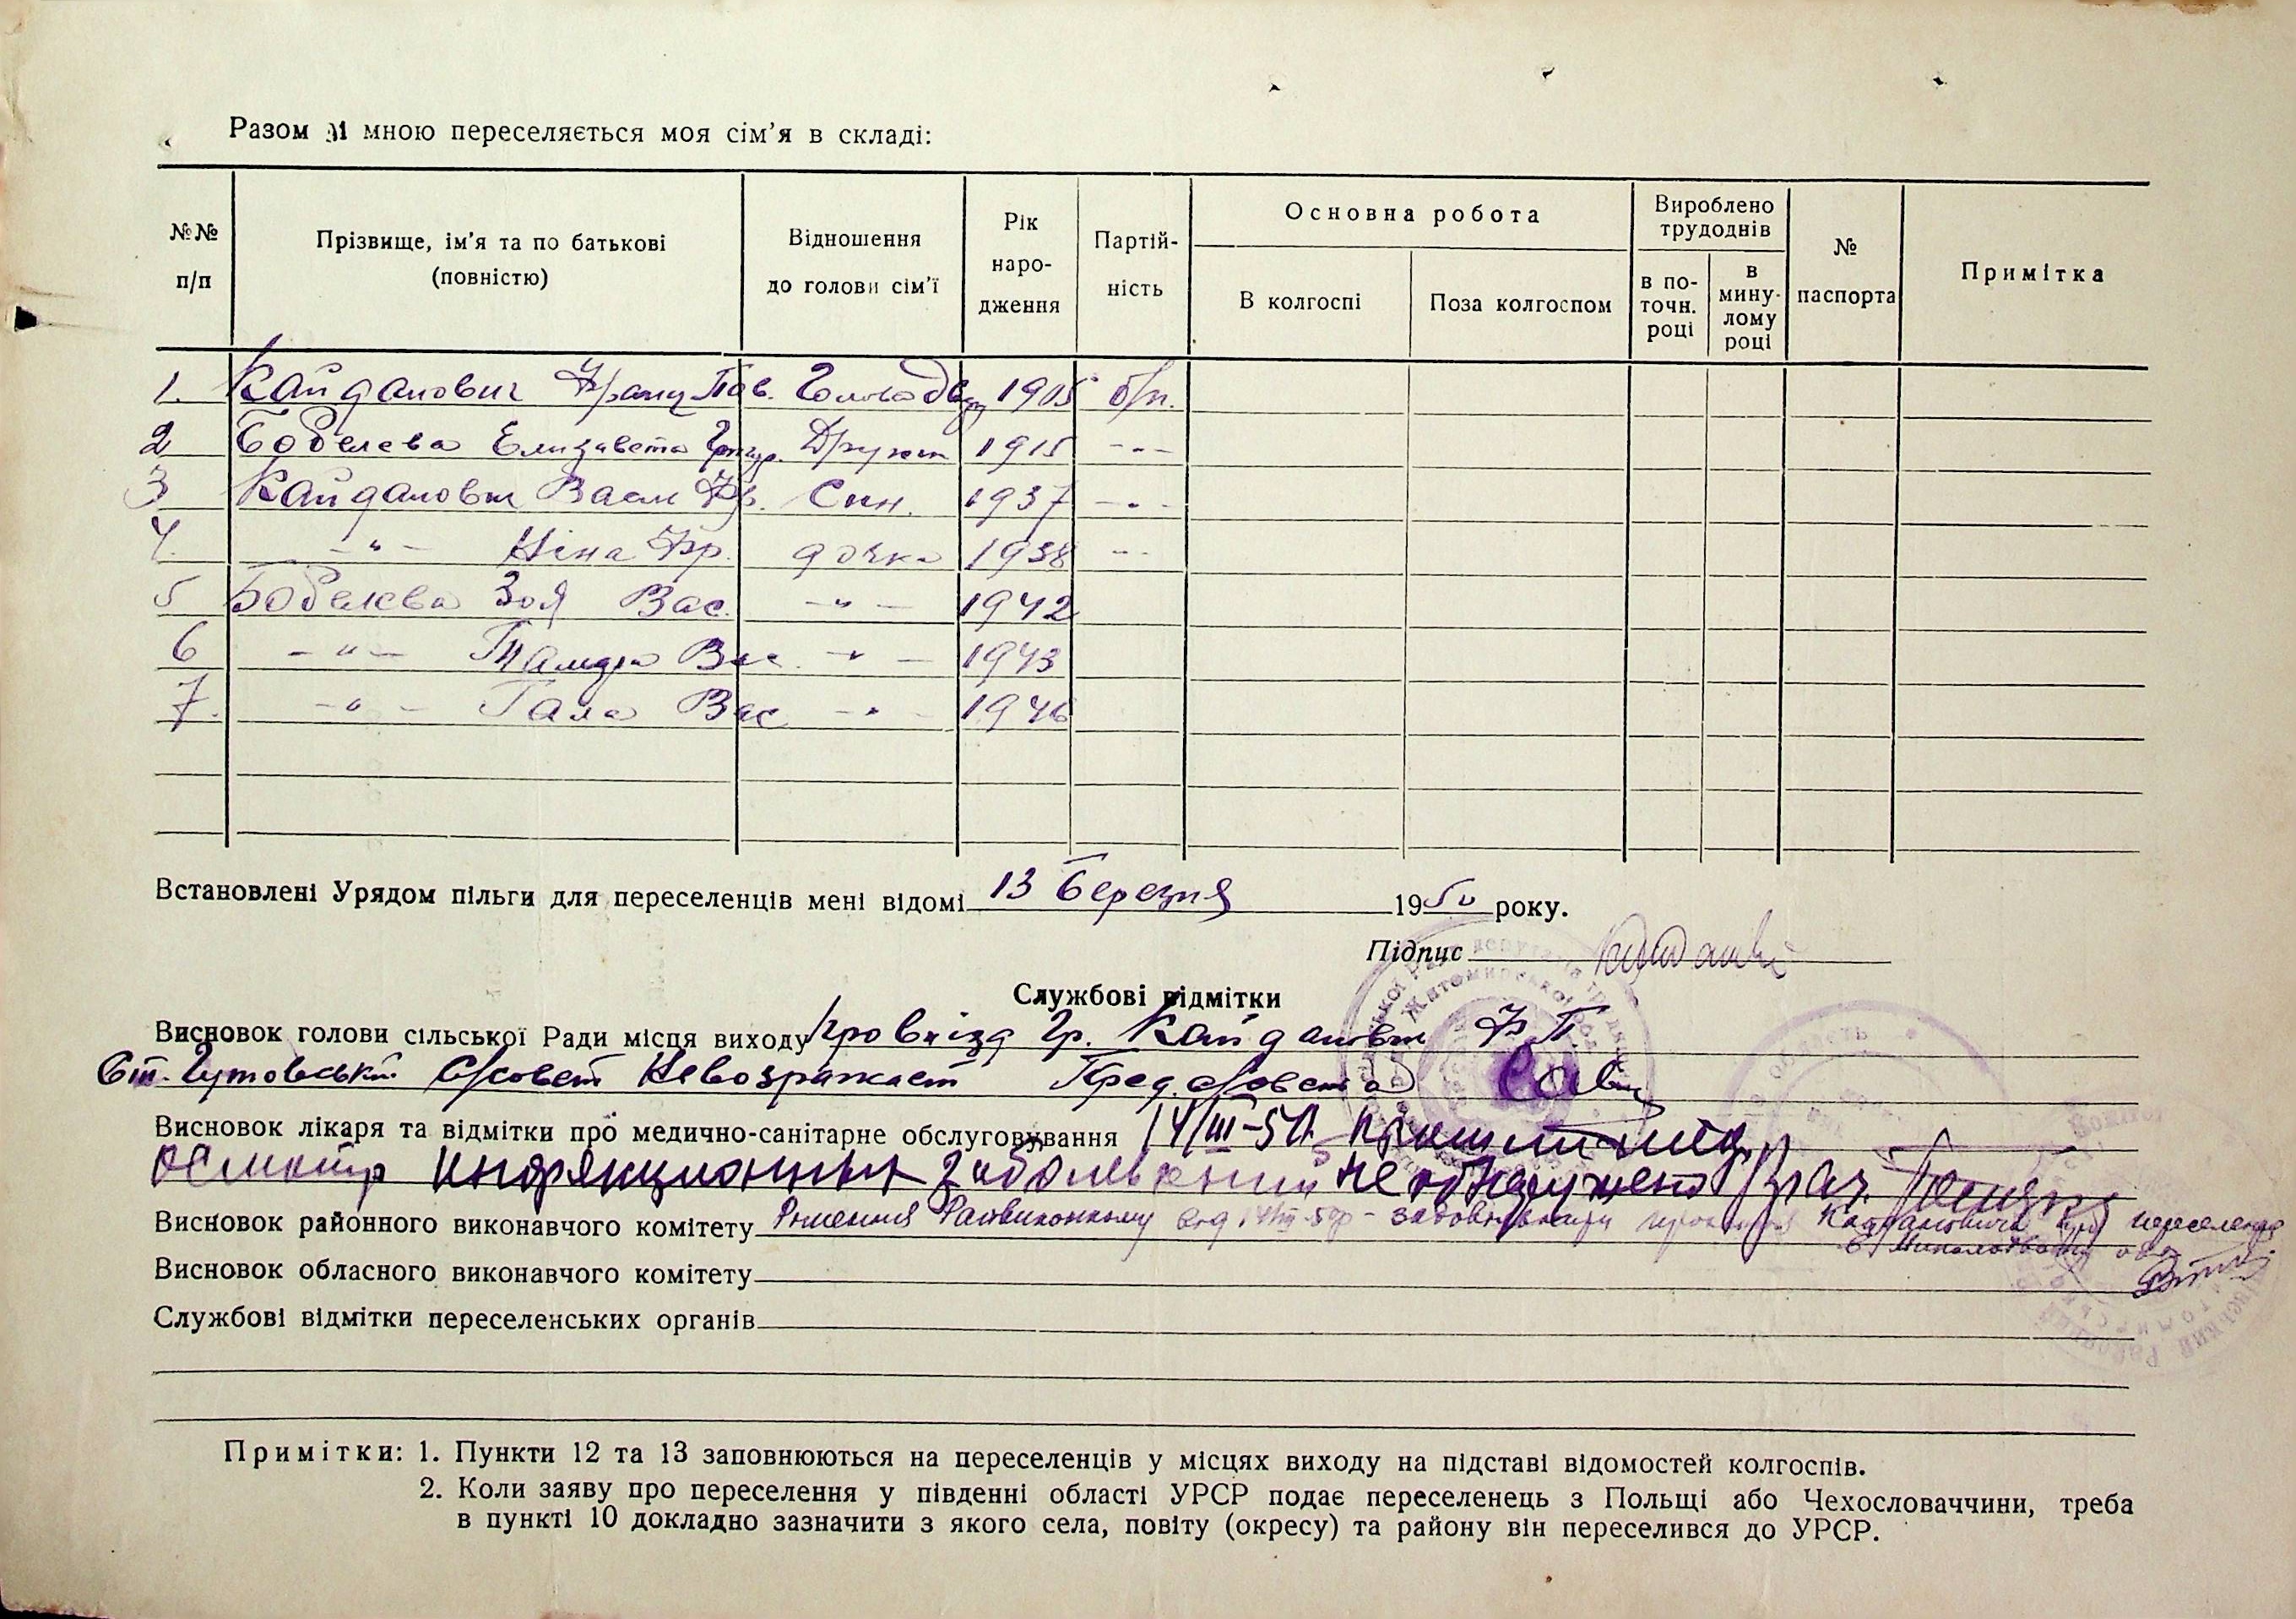 Разом зі мною переселяється моя сім'я в складі:
№№ п/п
Прізвище, ім'я та по батькові (повністю)
Відношення до голови сім'ї
Рік народження
Партійність
Основна робота
В колгоспі
Поза колгоспом
Вироблено трудоднів
в поточн. році
в минулому році
№ паспорта
Примітка
1. Кайданович Франц Пав. Голова дв. 1905 б/п.
2 Бобелєва Елизавета Григ. Дружин 1915 -"-
3 Кайданович Васил Фр. Син. 1937 -"-
4. -"- Ніна Фр. дочка 1938 -"-
5 Бобелєва Зоя Вас. -"- 1942
6 -"- Тамара Вас. -"- 1943
7. -"- Галя Вас -"- 1946
Встановлені Урядом пільги для переселенців мені відомі 13 березня 1950 року.
Підпис
Службові відмітки
Висновок голови сільської Ради місця виходу проти виїзд гр. Кайданович Ф. П.
С/совет Невозражает Пред. с/совета
Висновок лікаря та відмітки про медично-санітарне обслуговування 14/III-50
осмотр инфекционных заболеваний не обнаружено Врач
Висновок районного виконавчого комітету Рішення Райвиконкому від 14/III-50р - задовольнити прохання Кайдановича про переселення
в Миколаївську обл
Висновок обласного виконавчого комітету
Службові відмітки переселенських органів
Примітки: 1. Пункти 12 та 13 заповнюються на переселенців у місцях виходу на підставі відомостей колгоспів.
2. Коли заяву про переселення у південні області УРСР подає переселенець з Польщі або Чехословаччини, треба
в пункті 10 докладно зазначити з якого села, повіту (окресу) та району він переселився до УРСР.